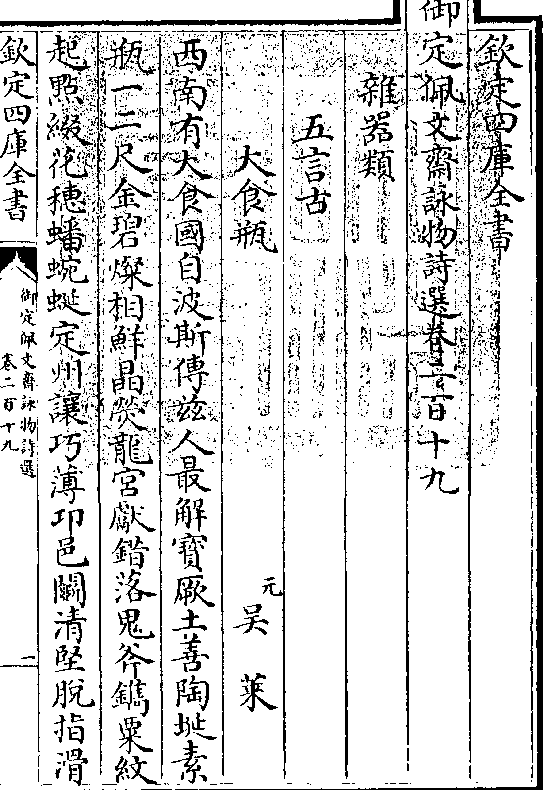 欽定四庫全書
御定佩文齋詠物詩選卷二百十九
雜器類
五言古
大食瓶 元 吴萊
西南有大食國自波斯傳兹人最解寶厥土善陶埏素
瓶一二尺金碧燦相鮮晶熒龍宫獻錯落鬼斧鐫粟紋
起點綴花穗蟠蜿蜒定州讓巧薄卭邑鬭清堅脫指滑
欽定四庫全書
御定佩文齋詠物詩選
卷二百十九
一